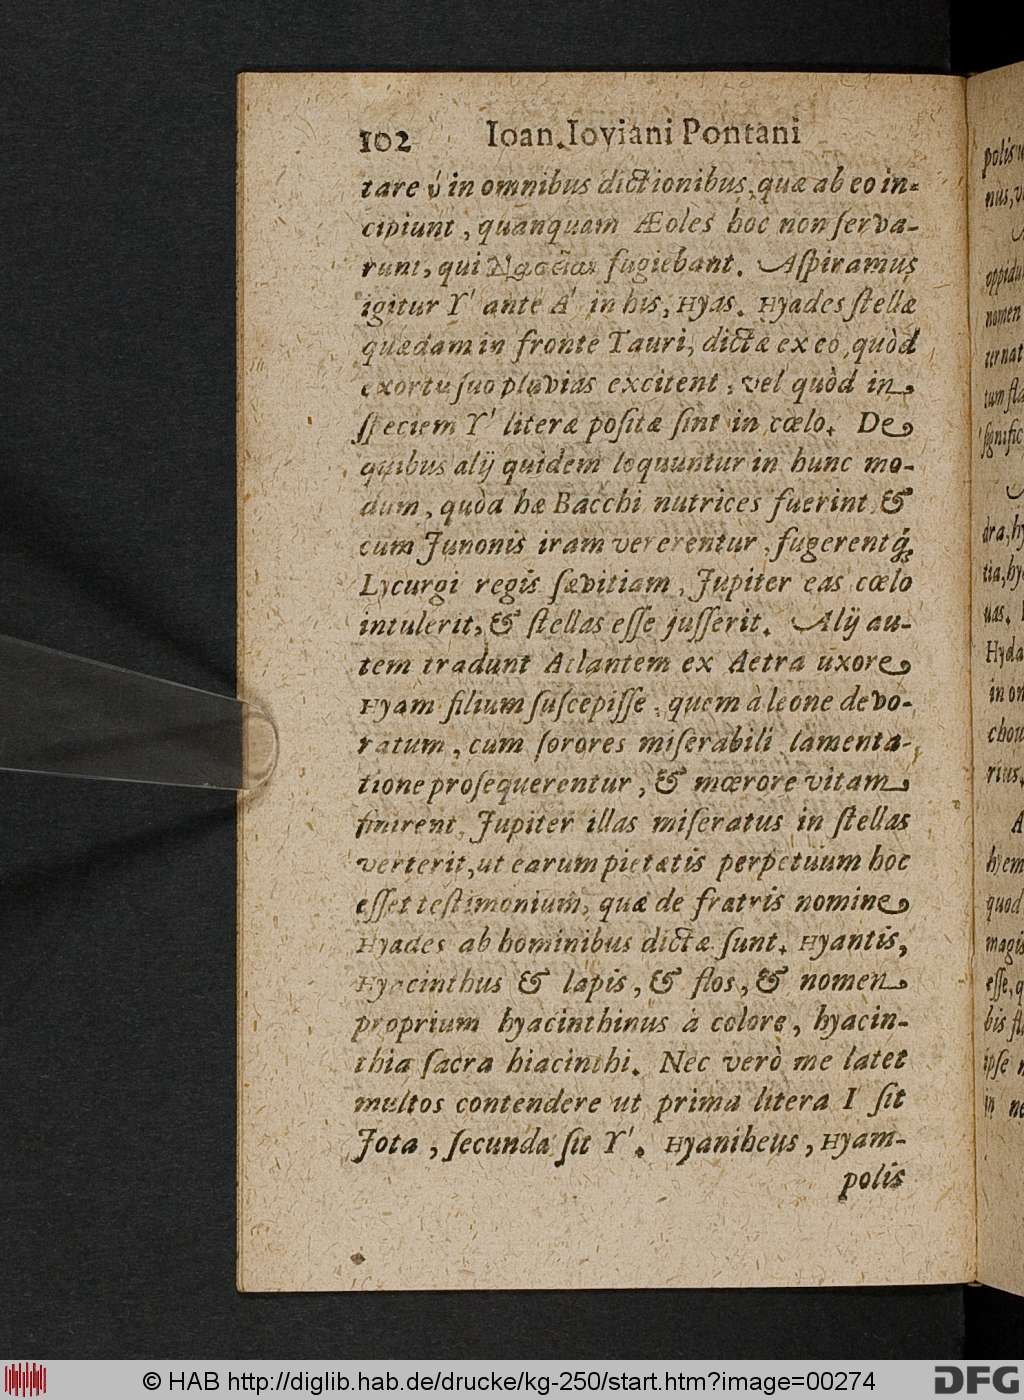 102 Ioan. Ioviani Pontani
tare ὐ in omnibus dictionibus, quæ ab eo in-
cipiunt, quanquam Æoles hoc non serva-
runt, qui fugiebant. Aspiramus
igitur Υ' ante Α' in his, Hyas. Hyades stellæ
quædam in fronte Tauri, dictæ ex eo, quòd
exortu suo pluvias excitent, vel quòd in
speciem Υ' literæ positæ sint in cœlo. De
quibus alij quidem loquuntur in hunc mo-
dum, quòd hæ Bacchi nutrices fuerint &
cum Junonis iram vererentur, fugerentq́;
Lycurgi regis sævitiam, Jupiter eas cœlo
intulerit, & stellas esse jusserit. Alij au-
tem tradunt Atlantem ex Aetra uxore
Hyam filium suscepisse, quem à leone devo-
ratum, cum sorores miserabili lamenta-
tione prosequerentur, & mœrore vitam
finirent, Jupiter illas miseratus in stellas
verterit, ut earum pietatis perpetuum hoc
esset testimonium, quæ de fratris nomine
Hyades ab hominibus dictæ sunt. Hyantis,
Hyacinthus & lapis, & flos, & nomen
proprium hyacinthinus à colore, hyacin-
thia sacra hiacinthi. Nec verò me latet
multos contendere ut prima litera I sit
Jota, secunda sit Υ'. Hyantheus, Hyam-
polis
© HAB http://diglib.hab.de/drucke/kg-250/start.htm?image=00274
DFG